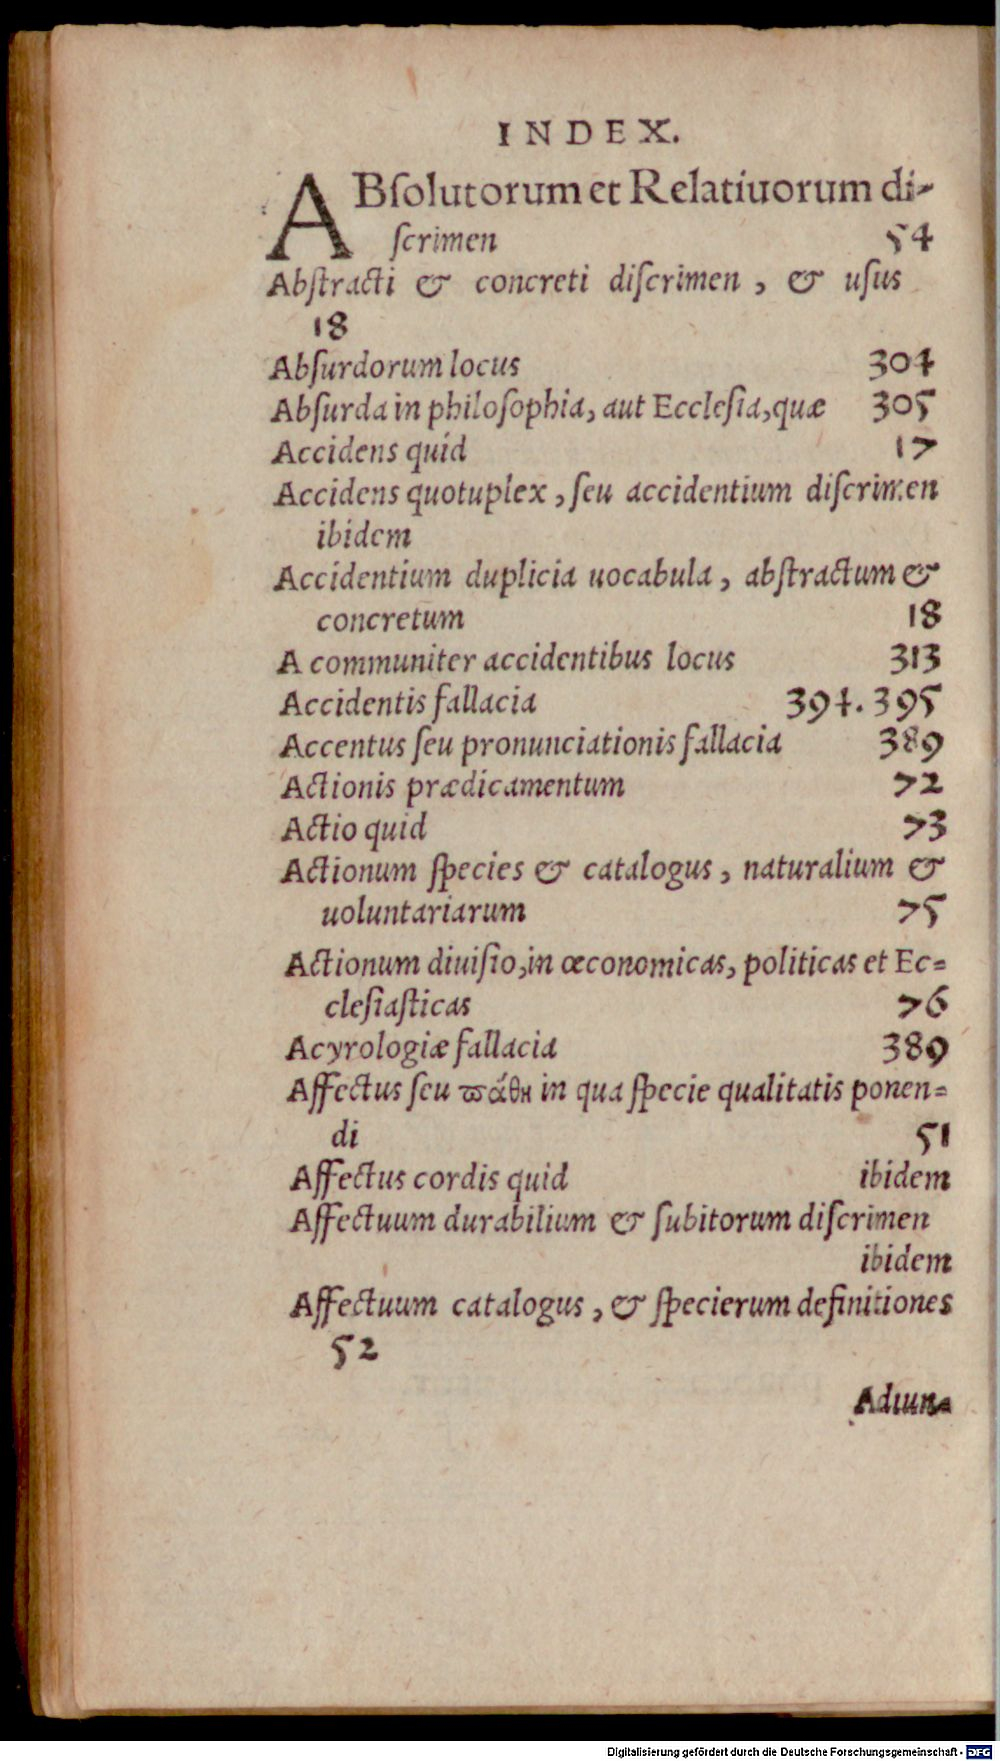 INDEX.
ABſolutorum et Relatiuorum di-
ſcrimen 54
Abſtracti & concreti diſcrimen, & uſus
18
Abſurdorum locus 304
Abſurda in philoſophia, aut Eccleſia, quæ 305
Accidens quid 17
Accidens quotuplex, ſeu accidentium diſcrimen
ibidem
Accidentium duplicia uocabula, abſtractum &
concretum 18
A communiter accidentibus locus 313
Accidentis fallacia 394. 395
Accentus ſeu pronunciationis fallacia 389
Actionis prædicamentum 72
Actio quid 73
Actionum ſpecies & catalogus, naturalium &
uoluntariarum 75
Actionum diuiſio, in œconomicas, politicas et Ec=
cleſiaſticas 76
Acyrologiæ fallacia 389
Affectus ſeu ϖάθη in qua ſpecie qualitatis ponen=
di 51
Affectus cordis quid ibidem
Affectuum durabilium & ſubitorum diſcrimen
ibidem
Affectuum catalogus, & ſpecierum definitiones
52
Adiun=
Digitalisierung gefördert durch die Deutsche Forschungsgemeinschaft - DFG